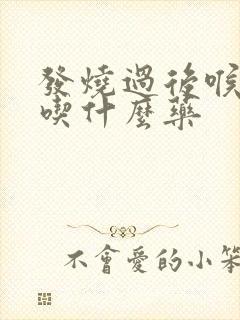 發燒過後喉
喫什麼藥
不會愛的小笨